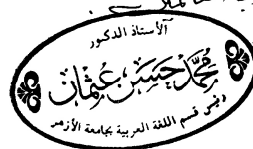 الأستاذ الدكور
محمد حسن عثمان
رئيس قسم اللغة العربية بجامعة الأزهر